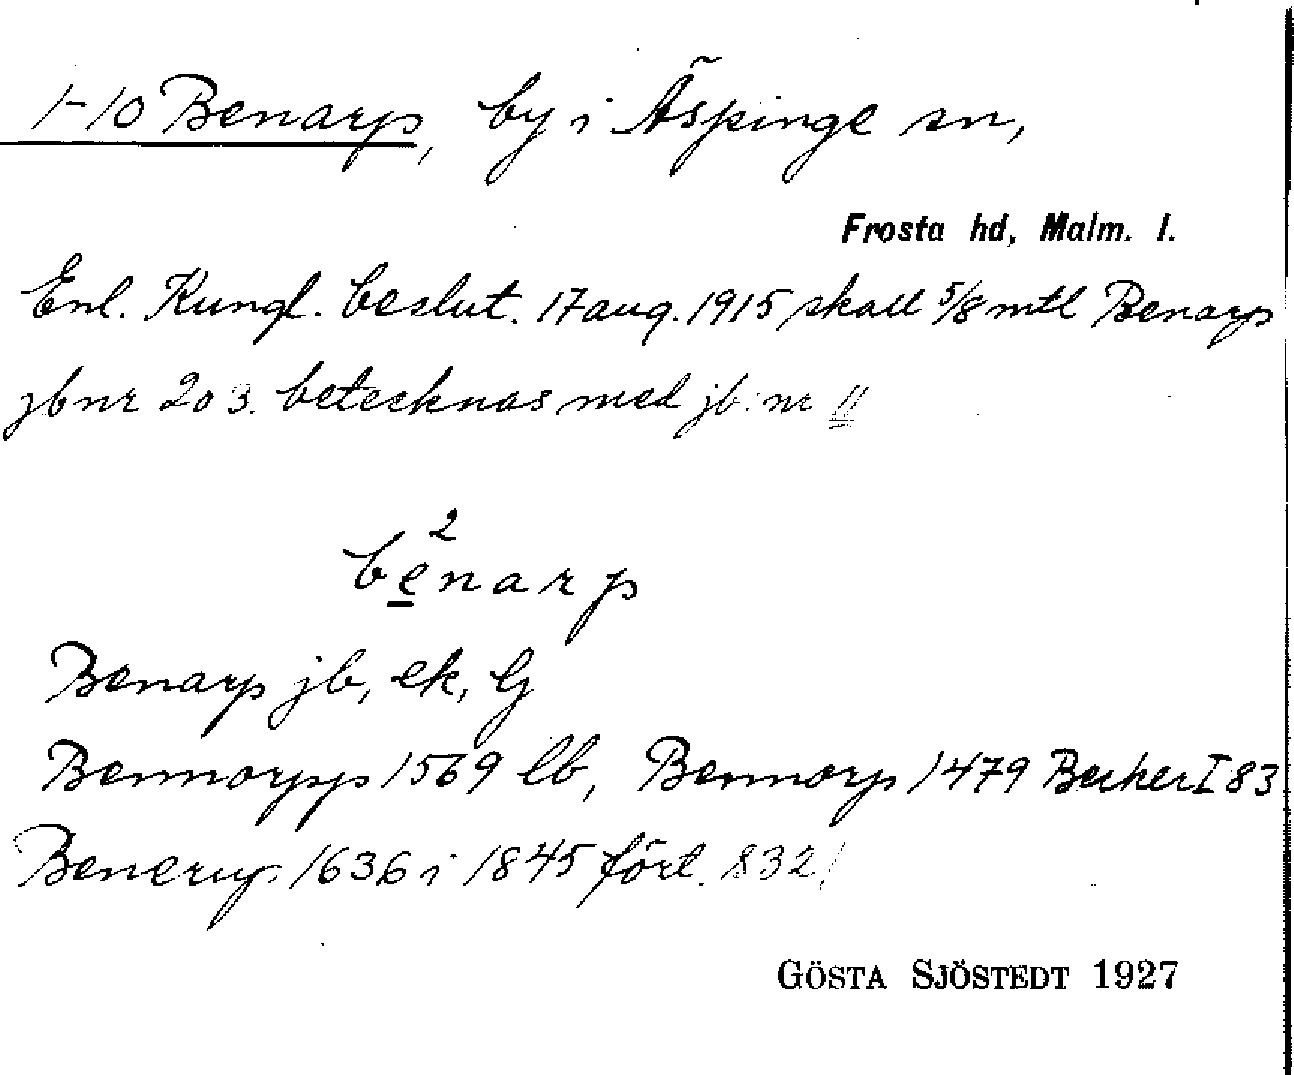 1-10 Benarp, by i Äspinge sn,
Frosta hd, Malm. l.
Enl. Kungl. beslut. 17 aug. 1915 skall 5/8 mtl Benarp
jbnr 2 o 3. betecknas med jb. nr 11
be²narp
Benarp jb, ek, G
Bennorpp 1569 lb, Bennorp 1479 Becker I 83
Benerup. 1636 i 1845 fört. 832!
GÖSTA SJÖSTEDT 1927